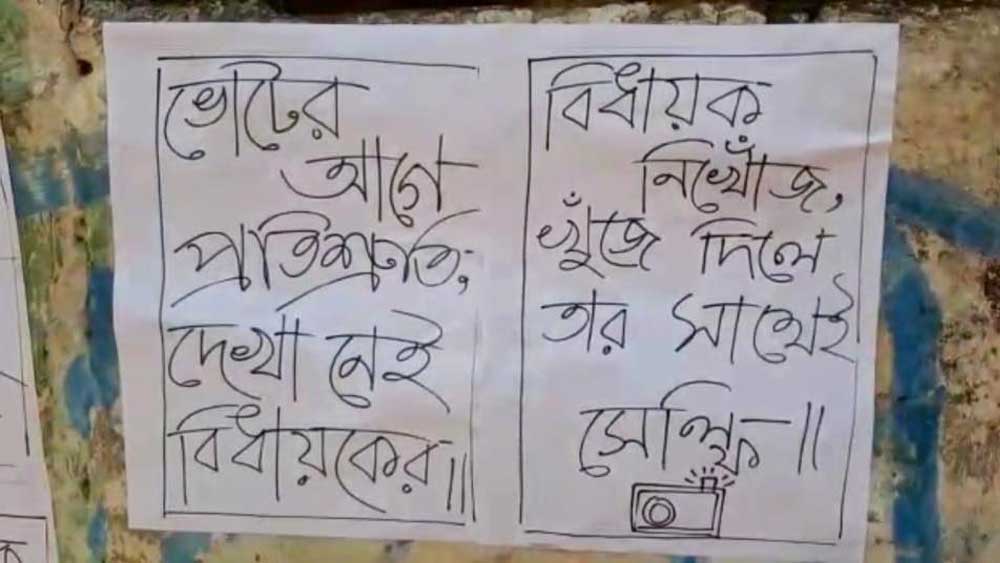 ভোটের
আগে
প্রতিশ্রুতি,
দেখা নেই
বিধায়কের॥
বিধায়ক
নিখোঁজ,
খুঁজে দিলে
তার সাথেই
সেল্ফি-॥